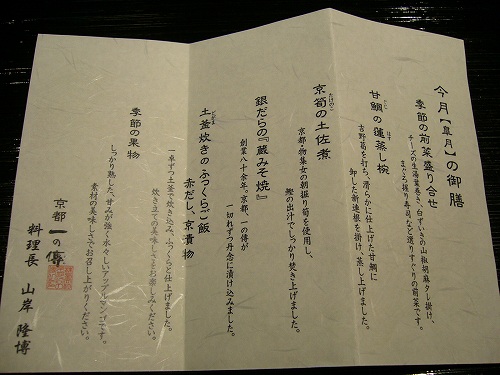 今月【皐月】の御膳
季節の前菜盛り合せ
チーズの生湯葉巻き、白ずいきの山椒胡麻タレ掛け、
まぐろ握り寿司など選りすぐりの前菜です。
甘鯛の蓮蒸し椀
吉野葛を打ち、滑らかに仕上げた甘鯛に
卸した新蓮根を掛け、蒸し上げました。
京筍の土佐煮
京都物集女の朝掘り筍を使用し、
鰹の出汁でしっかり焚き上げました。
銀だらの『蔵みそ焼』
創業八十余年。京都、一の傳が
一切れずつ丹念に漬け込みました。
土釜炊きの ふっくらご飯
赤だし、京漬物
一卓ずつ土釜で炊き込み、ふっくらと仕上げました。
炊き立ての美味しさをお楽しみください。
季節の果物
しっかり熟した、甘みが強く水々しいアップルマンゴです。
素材の美味しさでお召し上がりください。
京都 一の傳
料理長 山岸 隆博